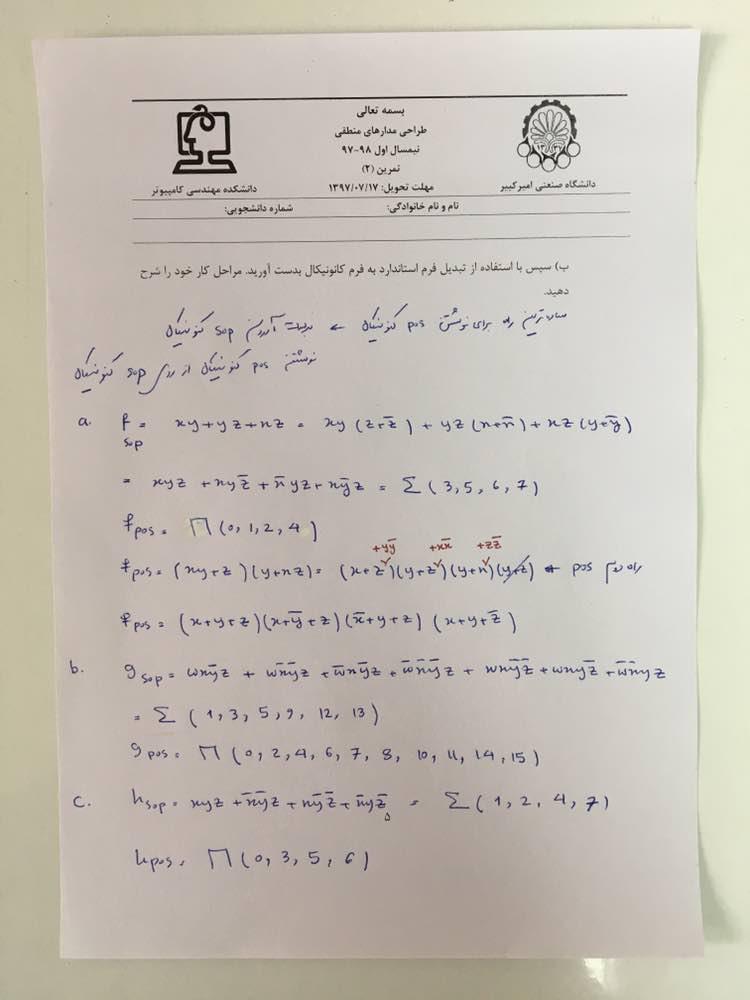 بسمه تعالی
طراحی مدارهای منطقی
نیمسال اول ۹۸-۹۷
تمرین (۲)
مهلت تحویل: ۱۳۹۷/۰۷/۱۷
دانشگاه صنعتی امیرکبیر
دانشکده مهندسی کامپیوتر
نام و نام خانوادگی: شماره دانشجویی:
ب) سپس با استفاده از تبدیل فرم استاندارد به فرم کانونیکال بدست آورید. مراحل کار خود را شرح
دهید.
ساده‌ترین راه برای نوشتن pos کنونیکال ← بدست آوردن sop کنونیکال
نوشتن pos کنونیکال از روی sop کنونیکال
a. f sop = xy + yz + xz = xy (z+z̅) + yz (x+x̅) + xz (y+y̅)
= xyz + xyz̅ + x̅yz + xy̅z = Σ (3, 5, 6, 7)
f pos = Π (0, 1, 2, 4)
+yy̅ +xx̅ +zz̅
f pos = (xy+z)(y+xz) = (x+z)(y+z)(y+x)(y+z) ← pos راه دوم
f pos = (x+y+z)(x+y̅+z)(x̅+y+z)(x+y+z̅)
b. g sop = wxy̅z + wx̅y̅z + w̅xy̅z + w̅x̅y̅z + wxy̅z̅ + wxyz̅ + w̅x̅yz
= Σ (1, 3, 5, 9, 12, 13)
g pos = Π (0, 2, 4, 6, 7, 8, 10, 11, 14, 15)
c. h sop = xyz + x̅y̅z + xy̅z̅ + x̅yz̅ = Σ (1, 2, 4, 7)
h pos = Π (0, 3, 5, 6)